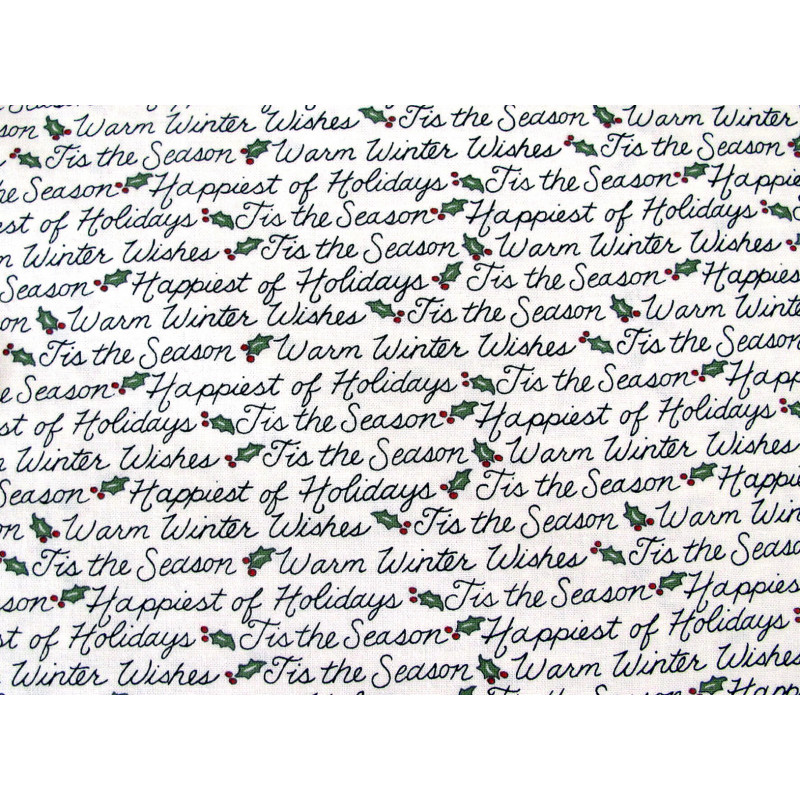 Season
son Warm Winter Wishes Tis the Season Warm Winter
Tis the Season Warm Winter Wishes Tis the Season
he Season Happiest of Holidays Tis the Season Happie
st of Holidays Tis the Season Happiest of Holidays
n Winter Wishes Tis the Season Warm Winter Wishes
Season Happiest of Holidays Tis the Season Happies
on Warm Winter Wishes Tis the Season Warm Winte
Tis the Season Warm Winter Wishes Tis the Season
e Season Happiest of Holidays Tis the Season Happ
st of Holidays Tis the Season Happiest of Holidays
n Winter Wishes Tis the Season Warm Winter Wishes
Season Happiest of Holidays Tis the Season Happie
n Warm Winter Wishes Tis the Season Warm Win
Tis the Season Warm Winter Wishes Tis the Season
son Happiest of Holidays Tis the Season Happiest
st of Holidays Tis the Season Happiest of Holidays
Winter Wishes Tis the Season Warm Winter Wishes
Tis the Season Happ